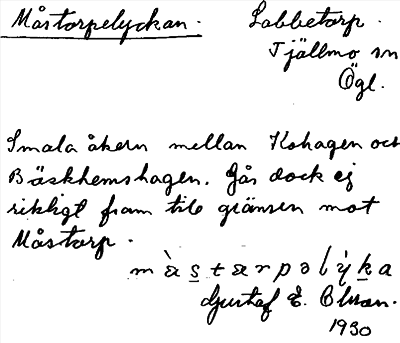 Måstorpelyckan. Labbetorp.
Tjällmo sn
Ögl.
Smala åkern mellan Kohagen och
Bäskhemshagen. Går dock ej
riktigt fram till gränsen mot
Måstorp.
Gustaf E. Olsson.
1930